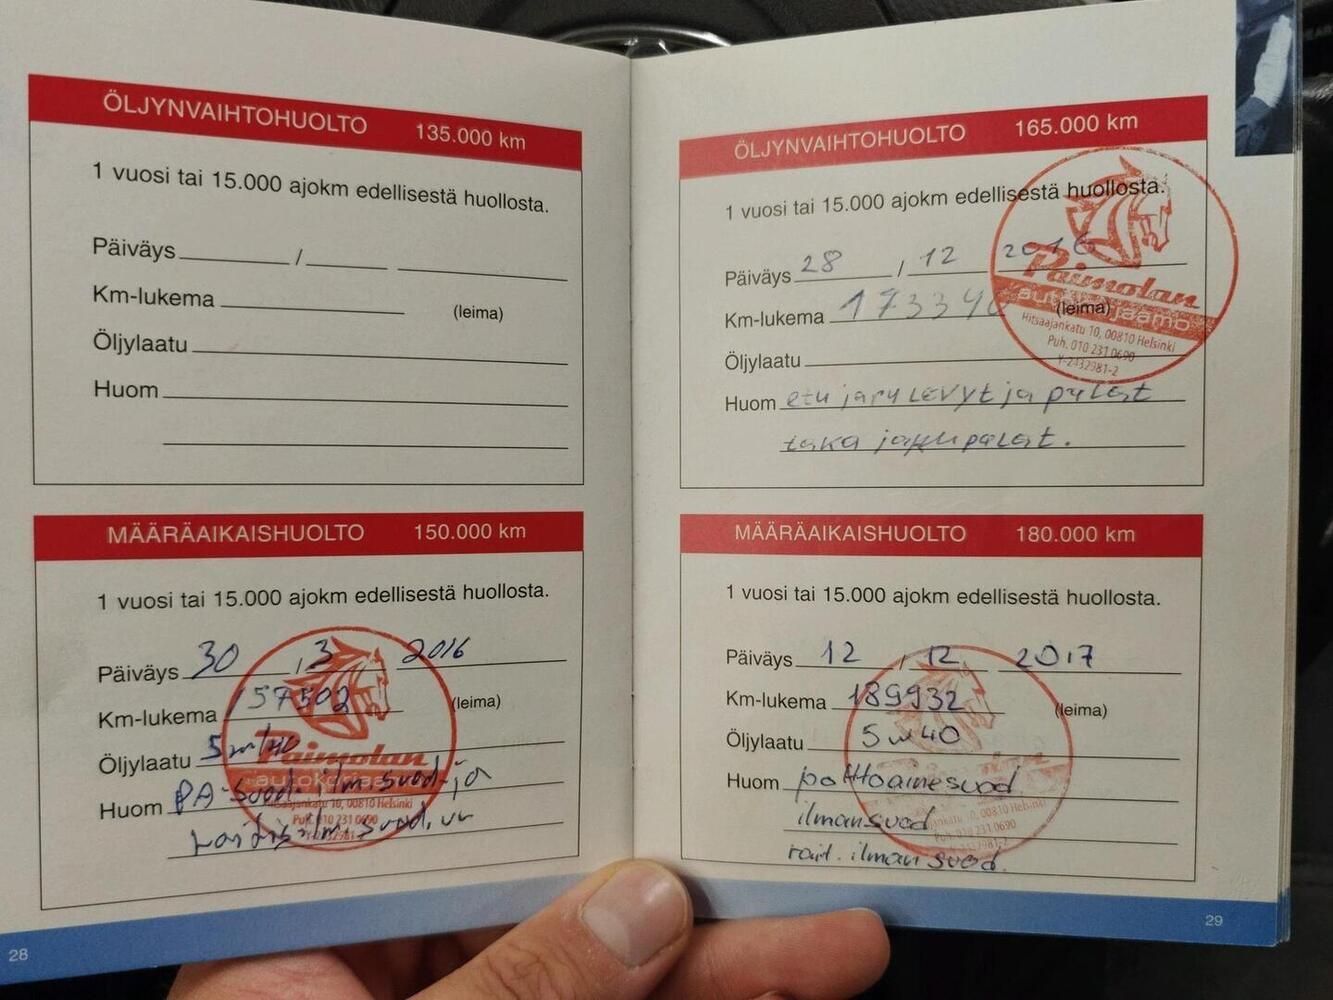 ÖLJYNVAIHTOHUOLTO 135.000 km
1 vuosi tai 15.000 ajokm edellisestä huollosta.
Päiväys / 
Km-lukema (leima)
Öljylaatu
Huom
MÄÄRÄAIKAISHUOLTO 150.000 km
1 vuosi tai 15.000 ajokm edellisestä huollosta.
Päiväys 30 / 3 2016
Km-lukema 157502 (leima)
Öljylaatu 5w/40
Huom PA-suod. ilm.suod. ja
suod.
Paimolan
autokorjaamo
Hitsaajankatu 10, 00810 Helsinki
Puh. 010 231 0690
Y-2432981-2
28
ÖLJYNVAIHTOHUOLTO 165.000 km
1 vuosi tai 15.000 ajokm edellisestä huollosta.
Päiväys 28 / 12 2016
Km-lukema 173340 (leima)
Öljylaatu
Huom etu jarru LEVYt ja palat
taka jarrupalat.
Paimolan
autokorjaamo
Hitsaajankatu 10, 00810 Helsinki
Puh. 010 231 0690
Y-2432981-2
MÄÄRÄAIKAISHUOLTO 180.000 km
1 vuosi tai 15.000 ajokm edellisestä huollosta.
Päiväys 12 / 12 2017
Km-lukema 189932 (leima)
Öljylaatu 5w40
Huom polttoainesuod.
ilmansuod
rait. ilman suod.
10, 00810 Helsinki
Puh. 010 231 0690
Y-2432981-2
29